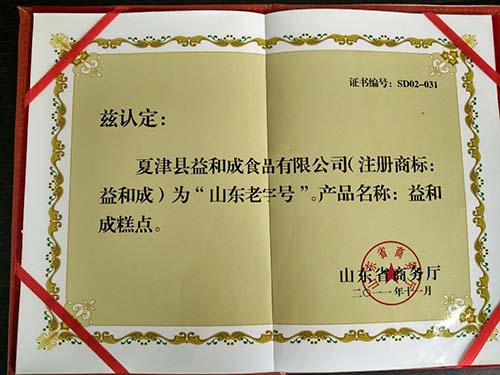 证书编号：SD02-031
兹认定：
夏津县益和成食品有限公司（注册商标：
益和成）为“山东老字号”。产品名称：益和
成糕点。
山东省商务厅
二〇一一年十一月
山东省商务厅